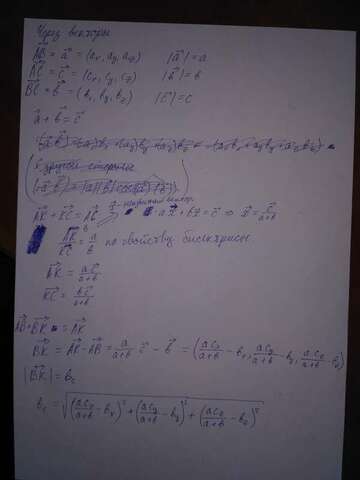 Через векторы
AB⃗ = a⃗ = (aₓ, a_y, a_z) |a⃗| = a
AC⃗ = c⃗ = (cₓ, c_y, c_z) |b⃗| = b
BC⃗ = b⃗ = (bₓ, b_y, b_z) |c⃗| = c
a⃗ + b⃗ = c⃗
с другой стороны
AK⃗ + KC⃗ = AC⃗ a x⃗ + b x⃗ = c⃗ ⇒ x⃗ = c⃗/(a+b)
AK⃗/KC⃗ = a/b по свойству биссектрисы
AK⃗ = a c⃗/(a+b)
KC⃗ = b c⃗/(a+b)
AB⃗ + BK⃗ = AK⃗
BK⃗ = AK⃗ - AB⃗ = a/(a+b) c⃗ - b⃗ = (acₓ/(a+b) - bₓ, ac_y/(a+b) - b_y, ac_z/(a+b) - b_z)
|BK⃗| = b_c
b_c = √((acₓ/(a+b) - bₓ)² + (ac_y/(a+b) - b_y)² + (ac_z/(a+b) - b_z)²)